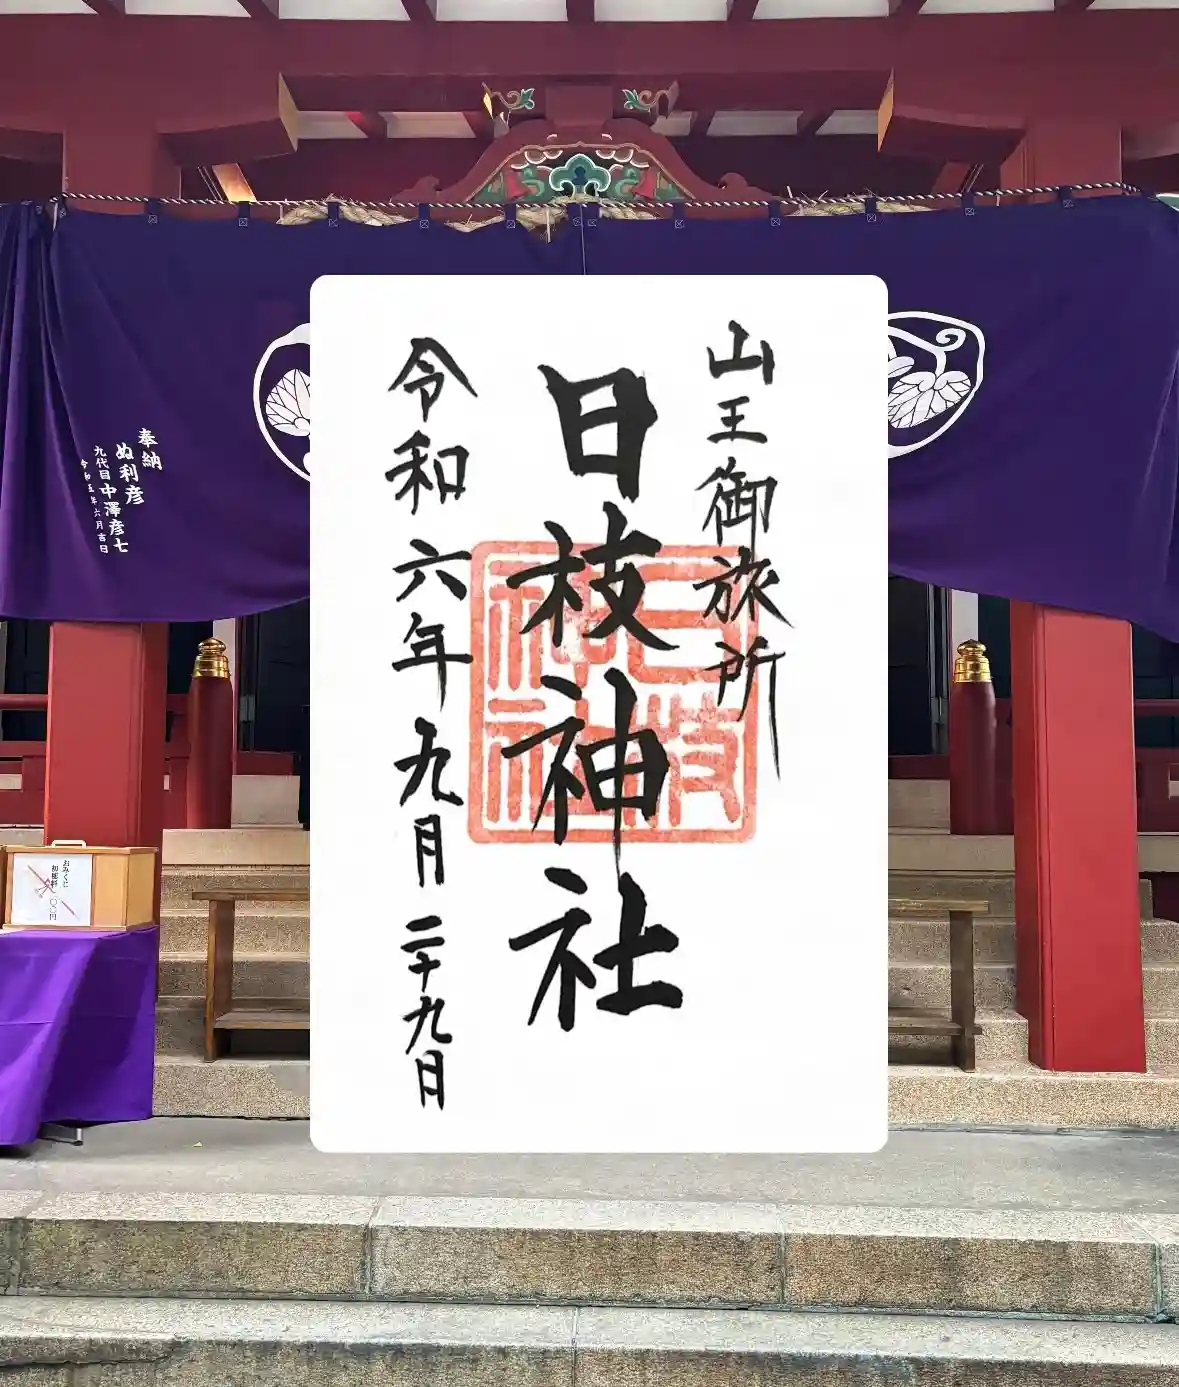 山王御旅所
日枝神社
令和六年九月二十九日
日枝
神社
奉納
ぬ利彦
九代目 中澤彦七
令和五年六月吉日
おみくじ
初穂料 一〇〇円